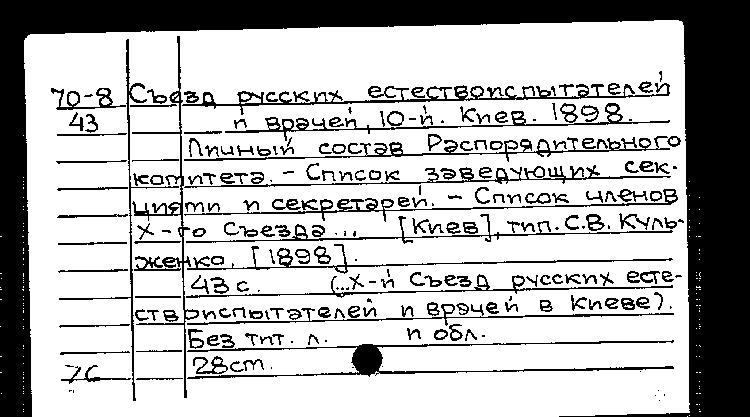 70-8 Съезд русских естествоиспытателей
43 и врачей, 10-й. Киев. 1898.
Личный состав Распорядительного
комитета. – Список заведующих сек-
циями и секретарей. – Список членов
X-го Съезда... [Киев], тип. С.В. Куль-
женко. [1898].
43 с. (...X-й Съезд русских есте-
ствоиспытателей и врачей в Киеве).
Без тит. л. и обл.
28 см.